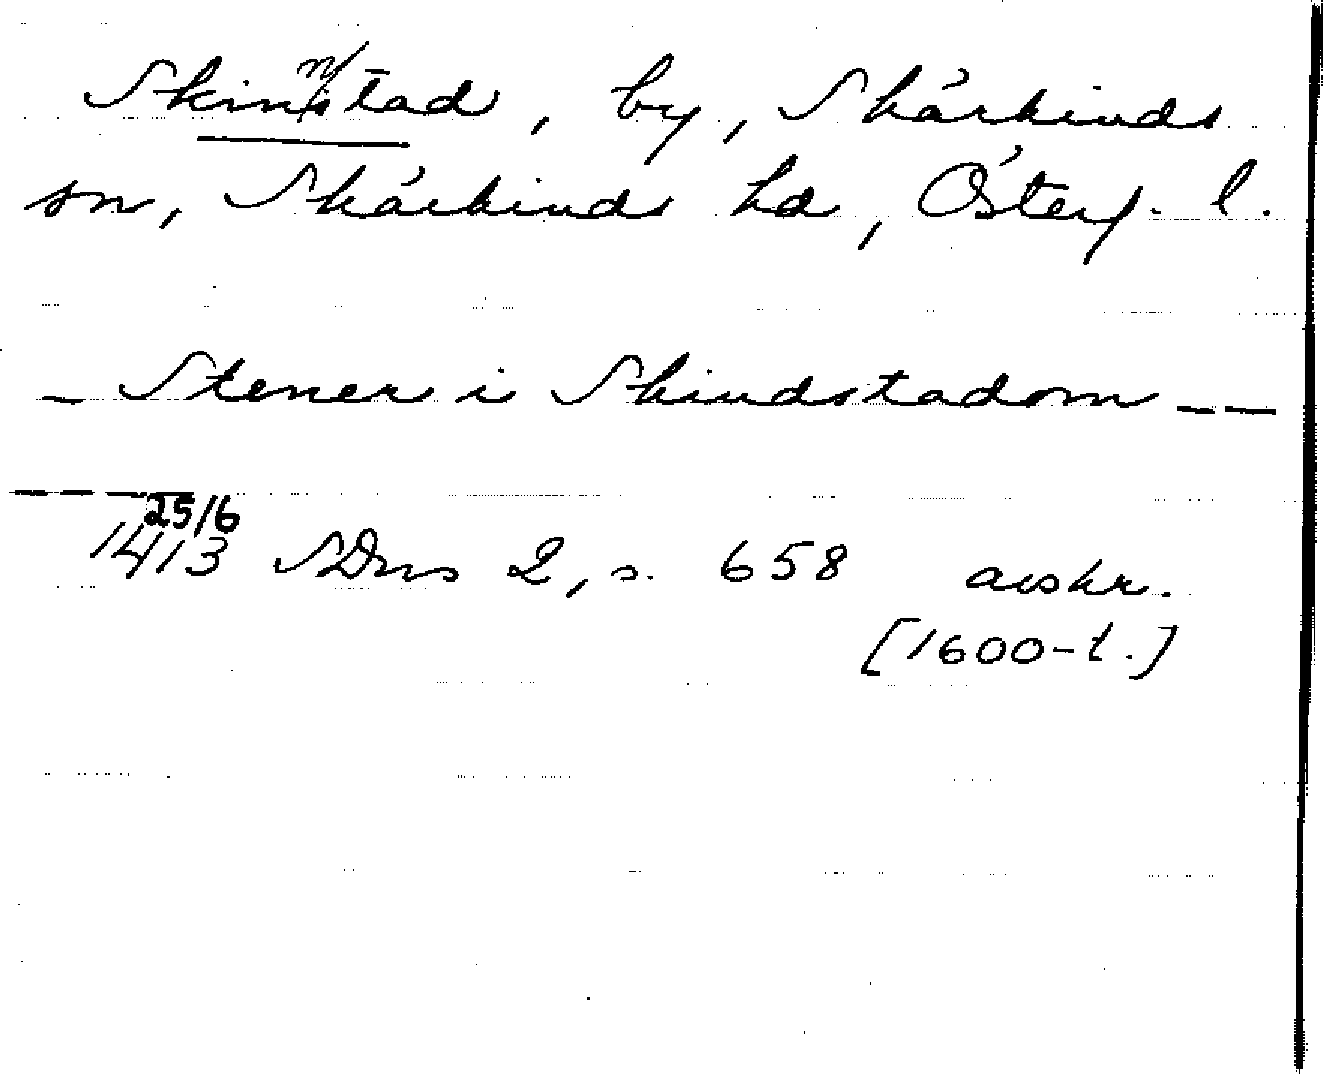 Skinnstad, by, Skärkinds
sn, Skärkinds hd, Österg. l.
– Stener i Skindstadom – –
– – –
25/6
1413 SDns 2, s. 658 avskr.
[1600-t.]